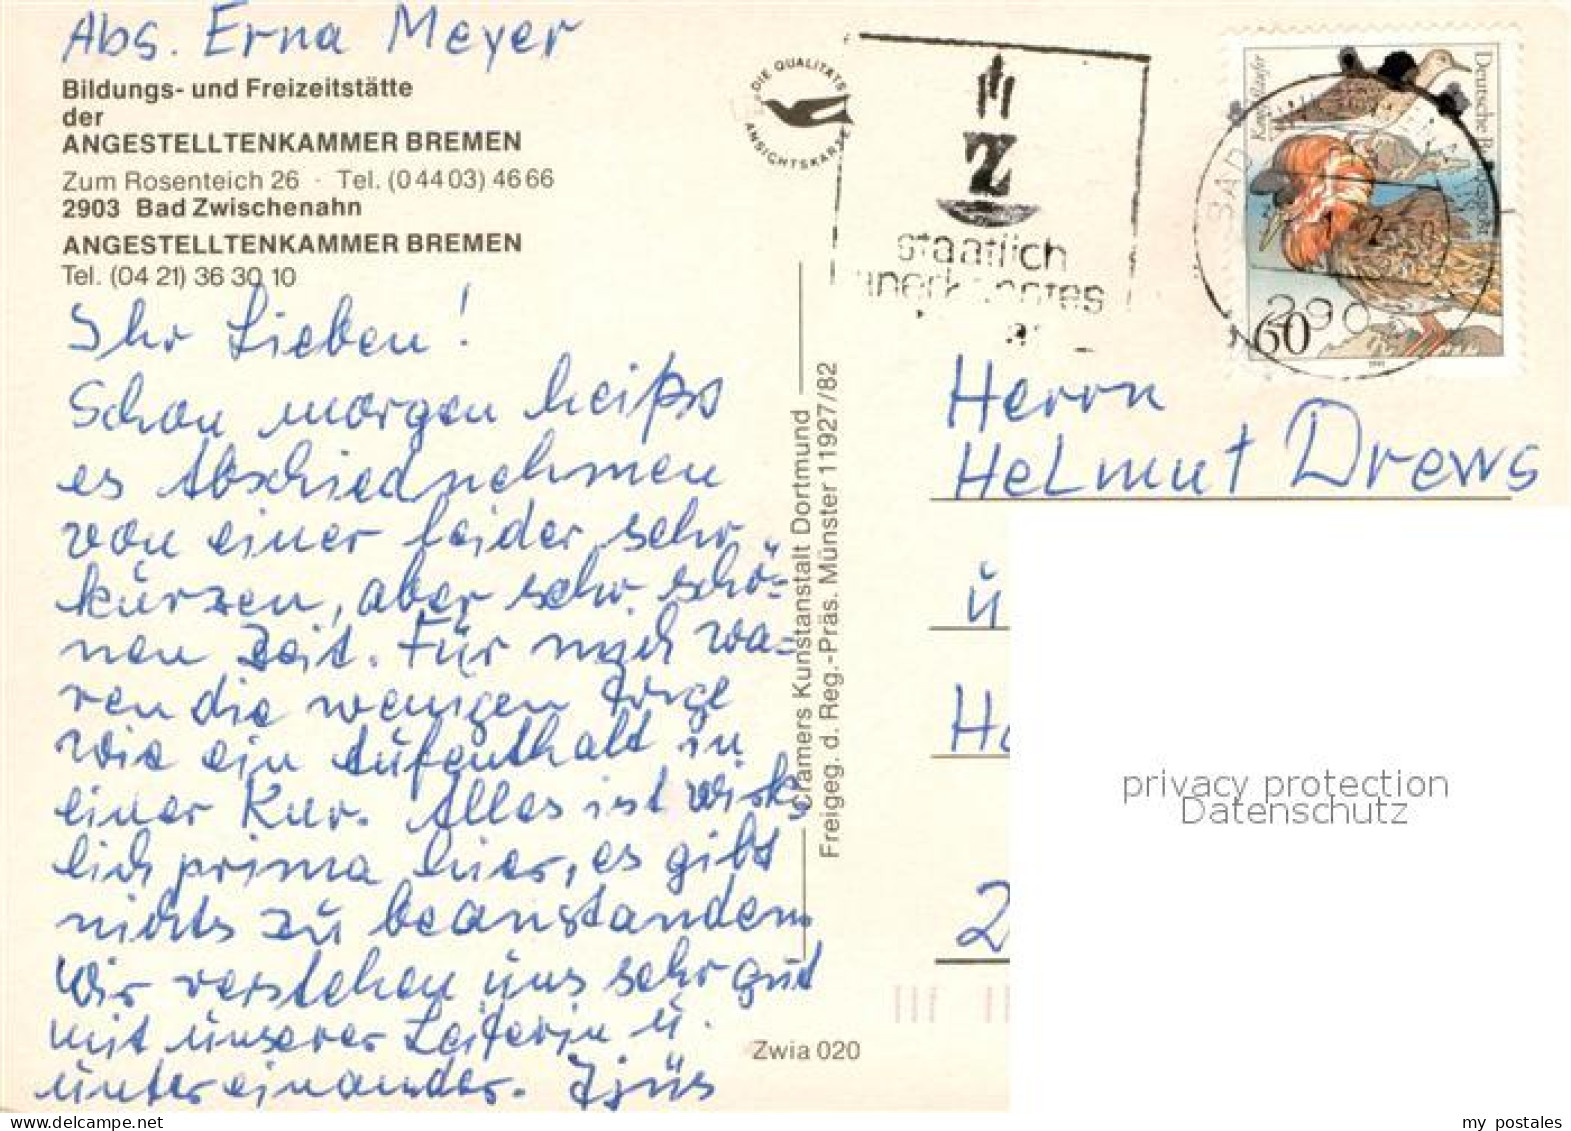 Abs. Erna Meyer
Bildungs- und Freizeitstätte
der
ANGESTELLTENKAMMER BREMEN
Zum Rosenteich 26 · Tel. (0 44 03) 46 66
2903 Bad Zwischenahn
ANGESTELLTENKAMMER BREMEN
Tel. (04 21) 36 30 10
Ihr Lieben!
Schon morgen heißts
es Abschiednehmen
von einer leider sehr
kurzen, aber sehr schö-
nen Zeit. Für mich wa-
ren die wenigen Tage
wie ein Aufenthalt in
einer Kur. Alles ist wirk-
lich prima hier, es gibt
nichts zu beanstanden.
Wir verstehen uns sehr gut
mit unserer Leiterin u.
untereinander. Tjüs
DIE QUALITÄTS
ANSICHTSKARTE
Z
staatlich
anerkanntes
Kampfläufer
Deutsche Bundespost
BAD
290
60
1991
Cramers Kunstanstalt Dortmund
Freigeg. d. Reg.-Präs. Münster 11927/82
Zwia 020
Herrn
Helmut Drews
ü
H
2
privacy protection
Datenschutz
www.delcampe.net
my_postales